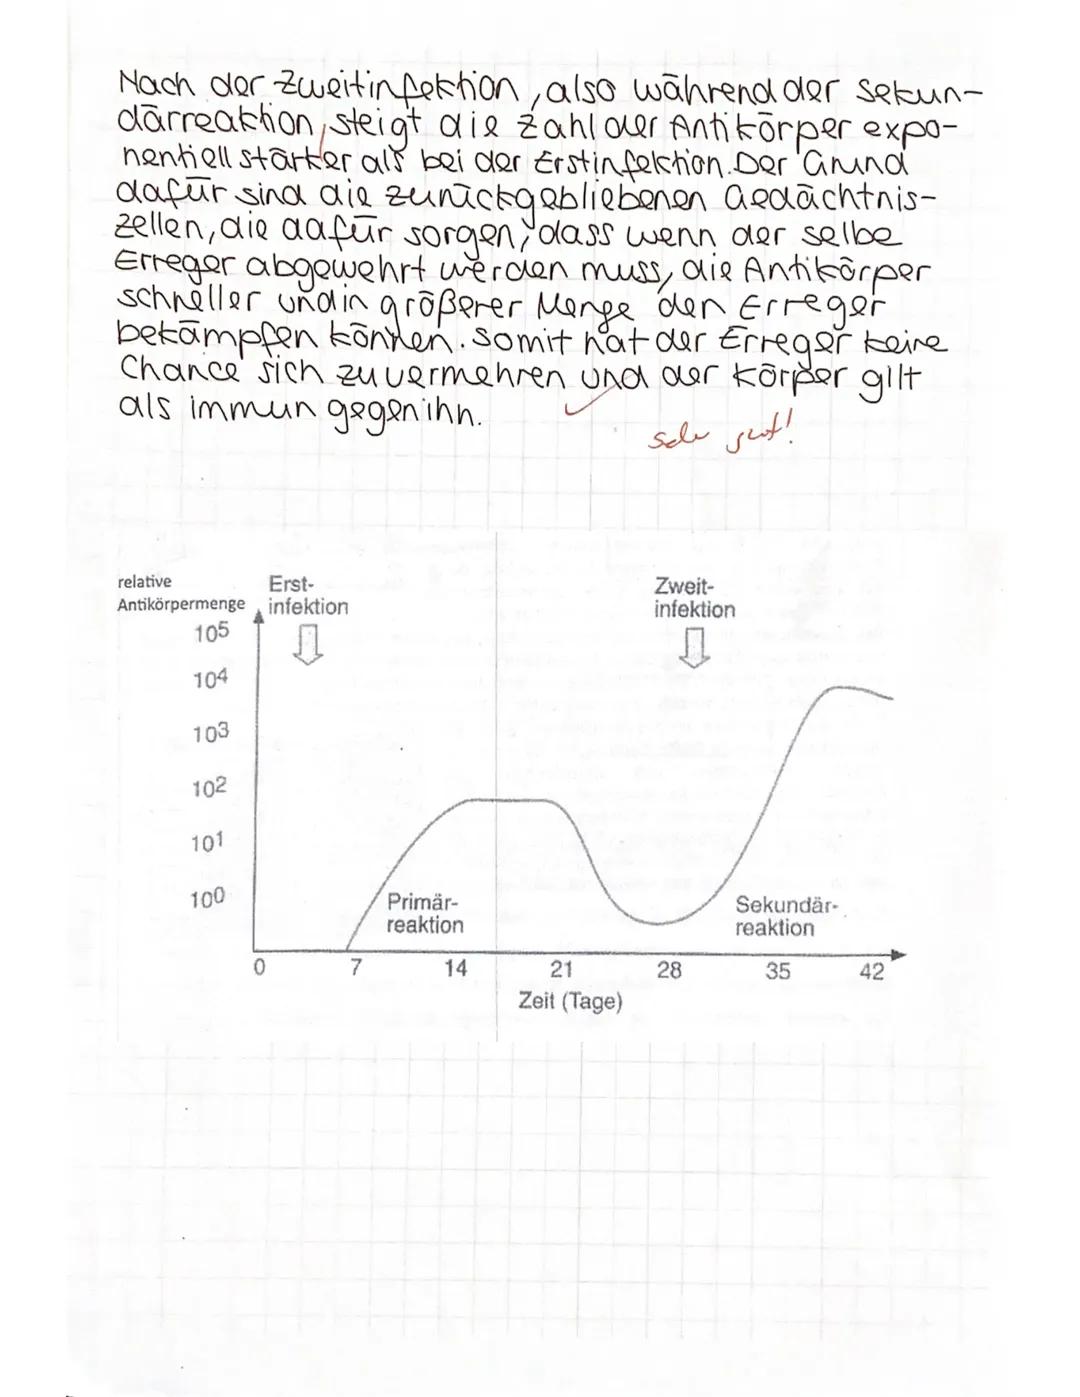 Nach der Zweitinfektion, also während der Sekun-
därreaktion, steigt die Zahl der Antikörper expo-
nentiell stärker als bei der Erstinfektion. Der Grund
dafür sind die zurückgebliebenen Gedächtnis-
zellen, die dafür sorgen, dass wenn der selbe
Erreger abgewehrt werden muss, die Antikörper
schneller und in größerer Menge den Erreger
bekämpfen können. Somit hat der Erreger keine
Chance sich zu vermehren und der Körper gilt
als immun gegen ihn.
sehr gut!
relative
Antikörpermenge
Erst-
infektion
Zweit-
infektion
10⁵
10⁴
10³
10²
10¹
10⁰
Primär-
reaktion
Sekundär-
reaktion
0 7 14 21 28 35 42
Zeit (Tage)